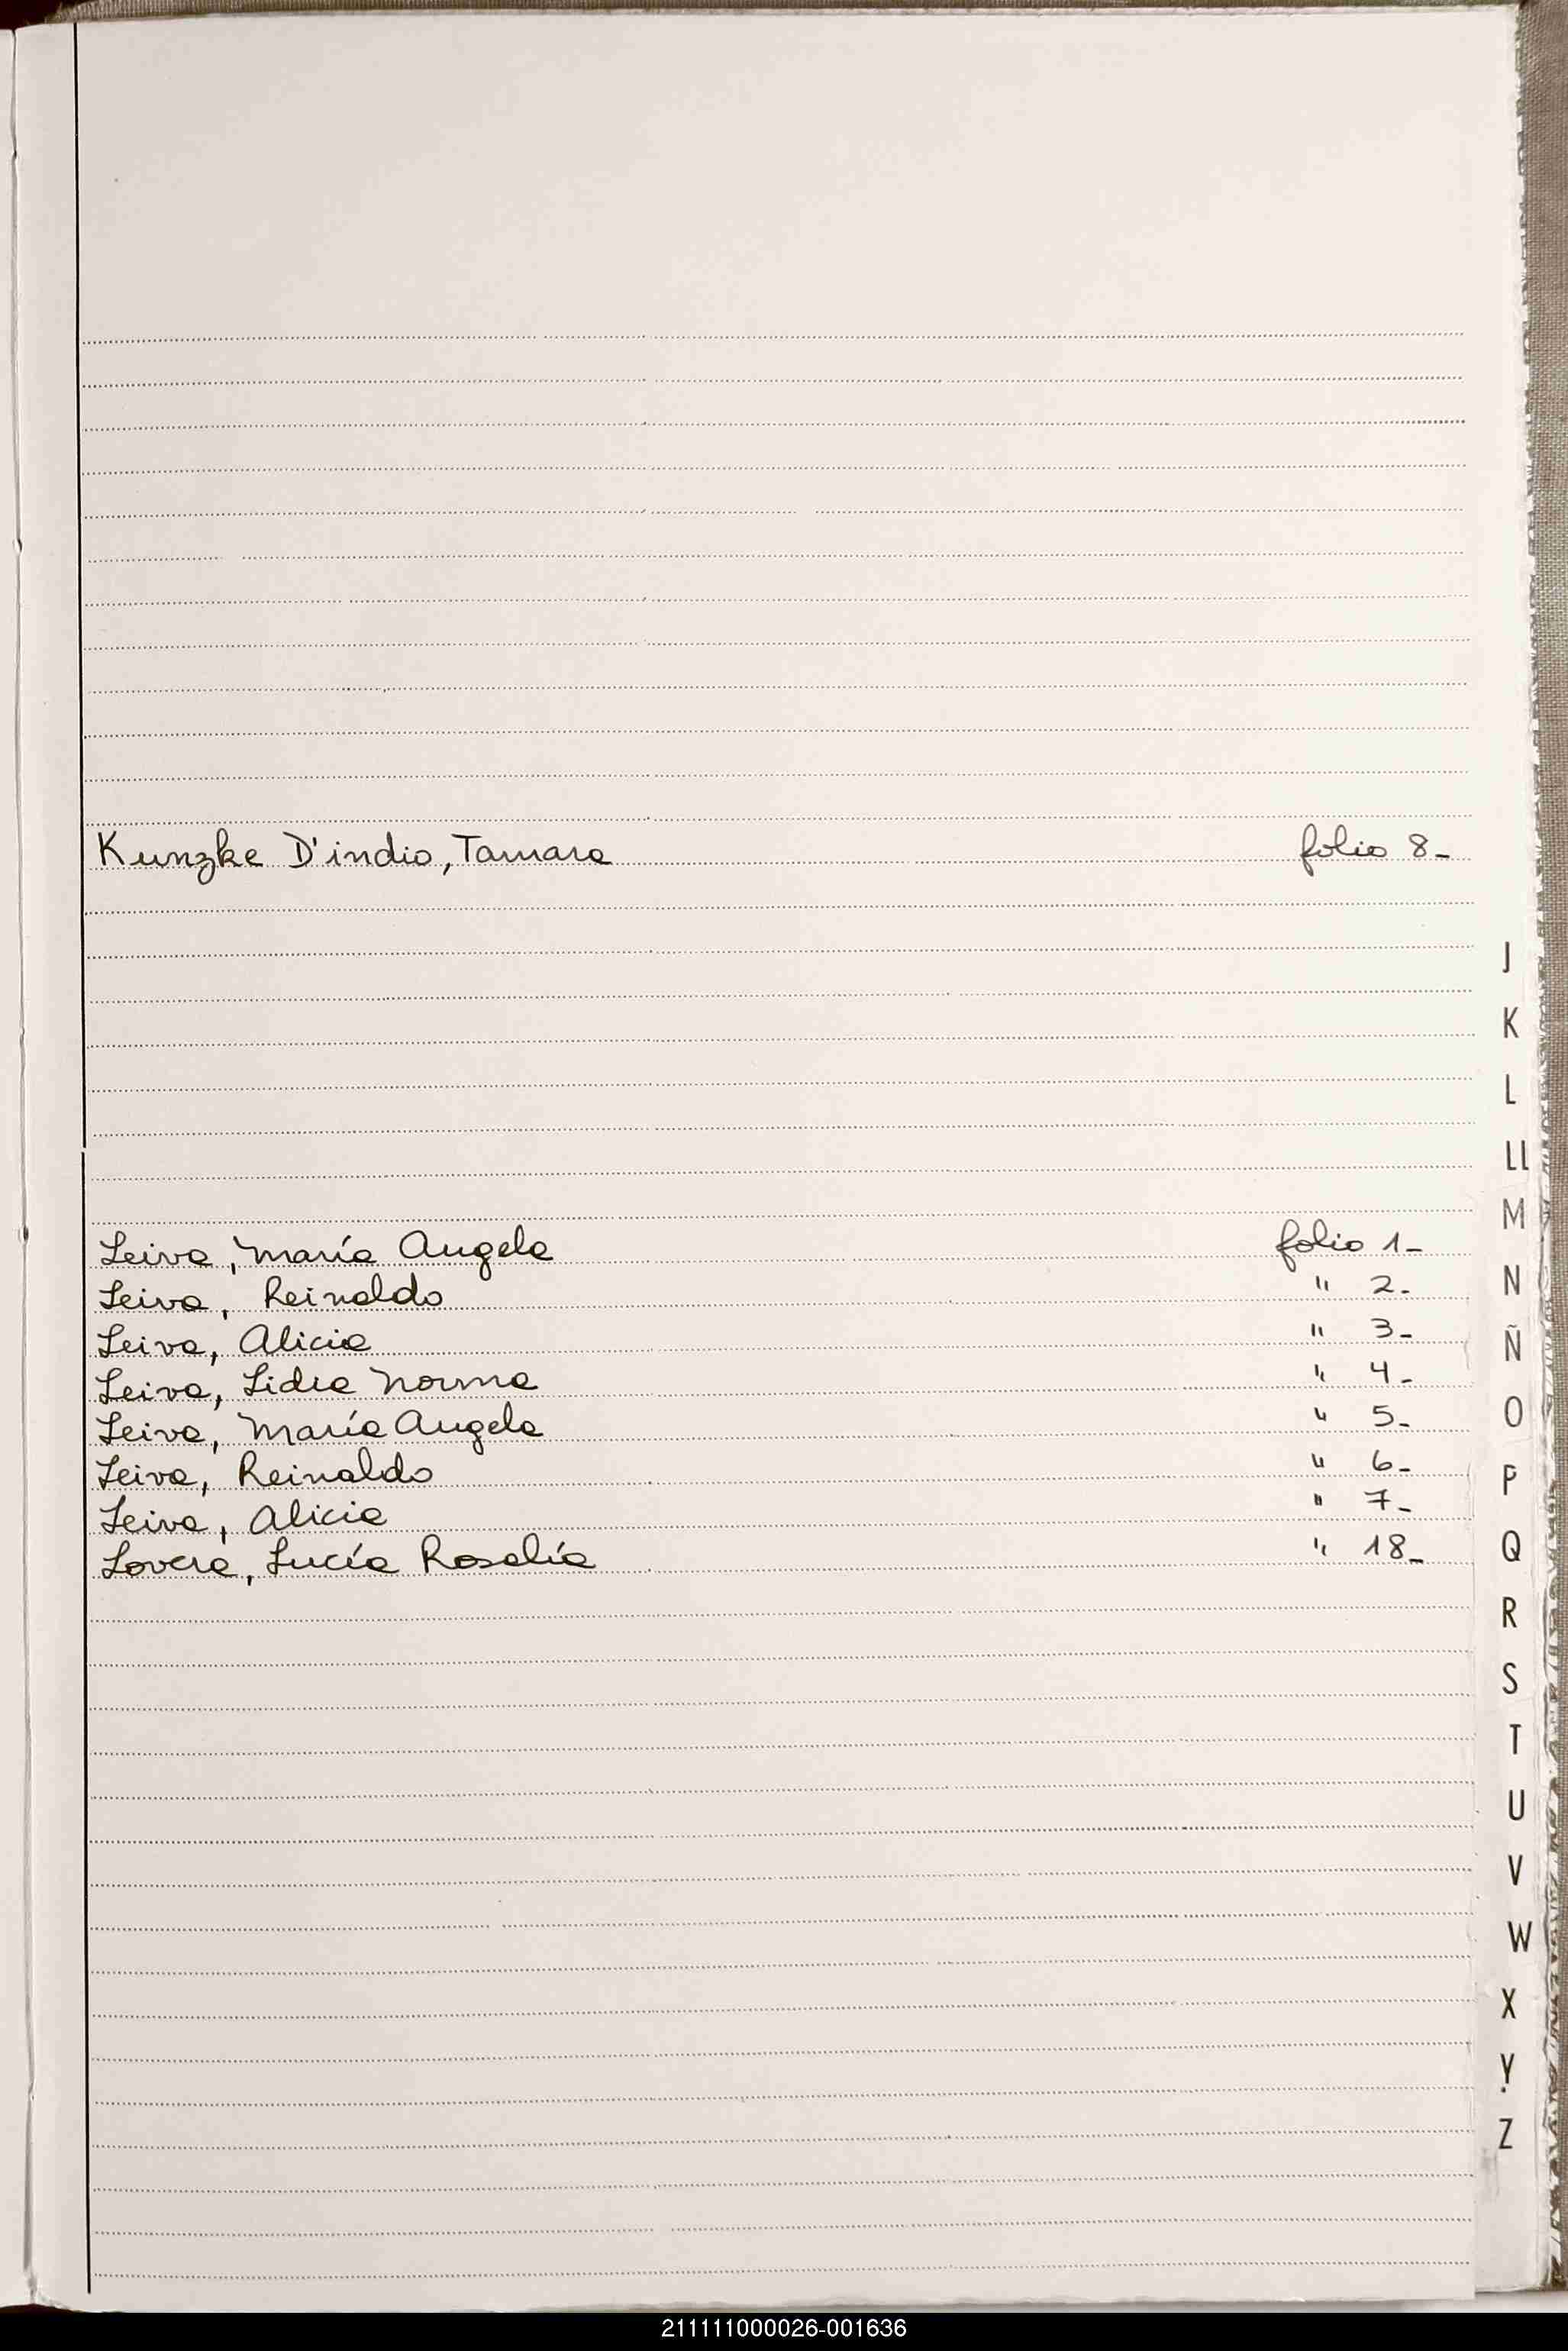 Kunzke D'indio, Tamara folio 8-
Leiva, María Angela folio 1-
Leiva, Reinaldo " 2-
Leiva, Alicia " 3-
Leiva, Lidia Norma " 4-
Leiva, María Angela " 5-
Leiva, Reinaldo " 6-
Leiva, Alicia " 7-
Lovera, Lucía Rosalía " 18-
J
K
L
LL
M
N
Ñ
O
P
Q
R
S
T
U
V
W
X
Y
Z
211111000026-001636